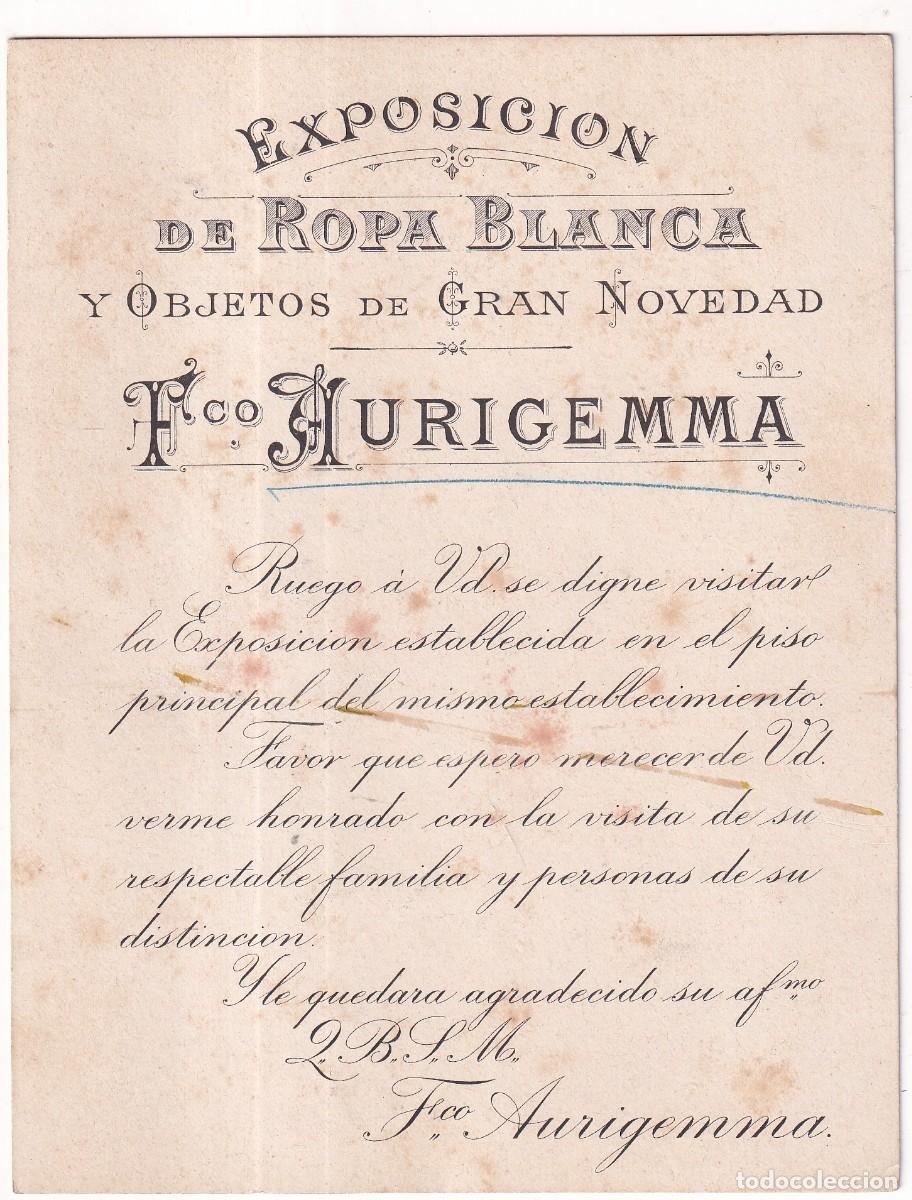 EXPOSICION
DE ROPA BLANCA
Y OBJETOS DE GRAN NOVEDAD
Fco AURIGEMMA
Ruego á Vd. se digne visitar
la Exposicion establecida en el piso
principal del mismo establecimiento.
Favor que espero merecer de Vd.
verme honrado con la visita de su
respectable familia y personas de su
distincion.
Y le quedara agradecido su afmo
Q. B. S. M.
Fco Aurigemma.
todocoleccion